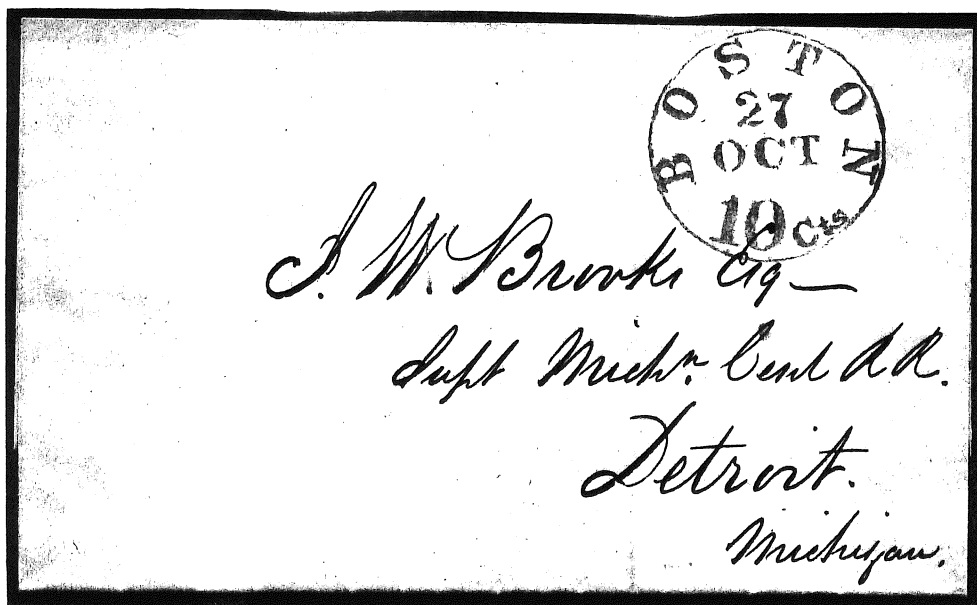 BOSTON
27
OCT
10 Cts
J. W. Brooks Esq—
Supt Michn. Cent R R.
Detroit.
Michigan.